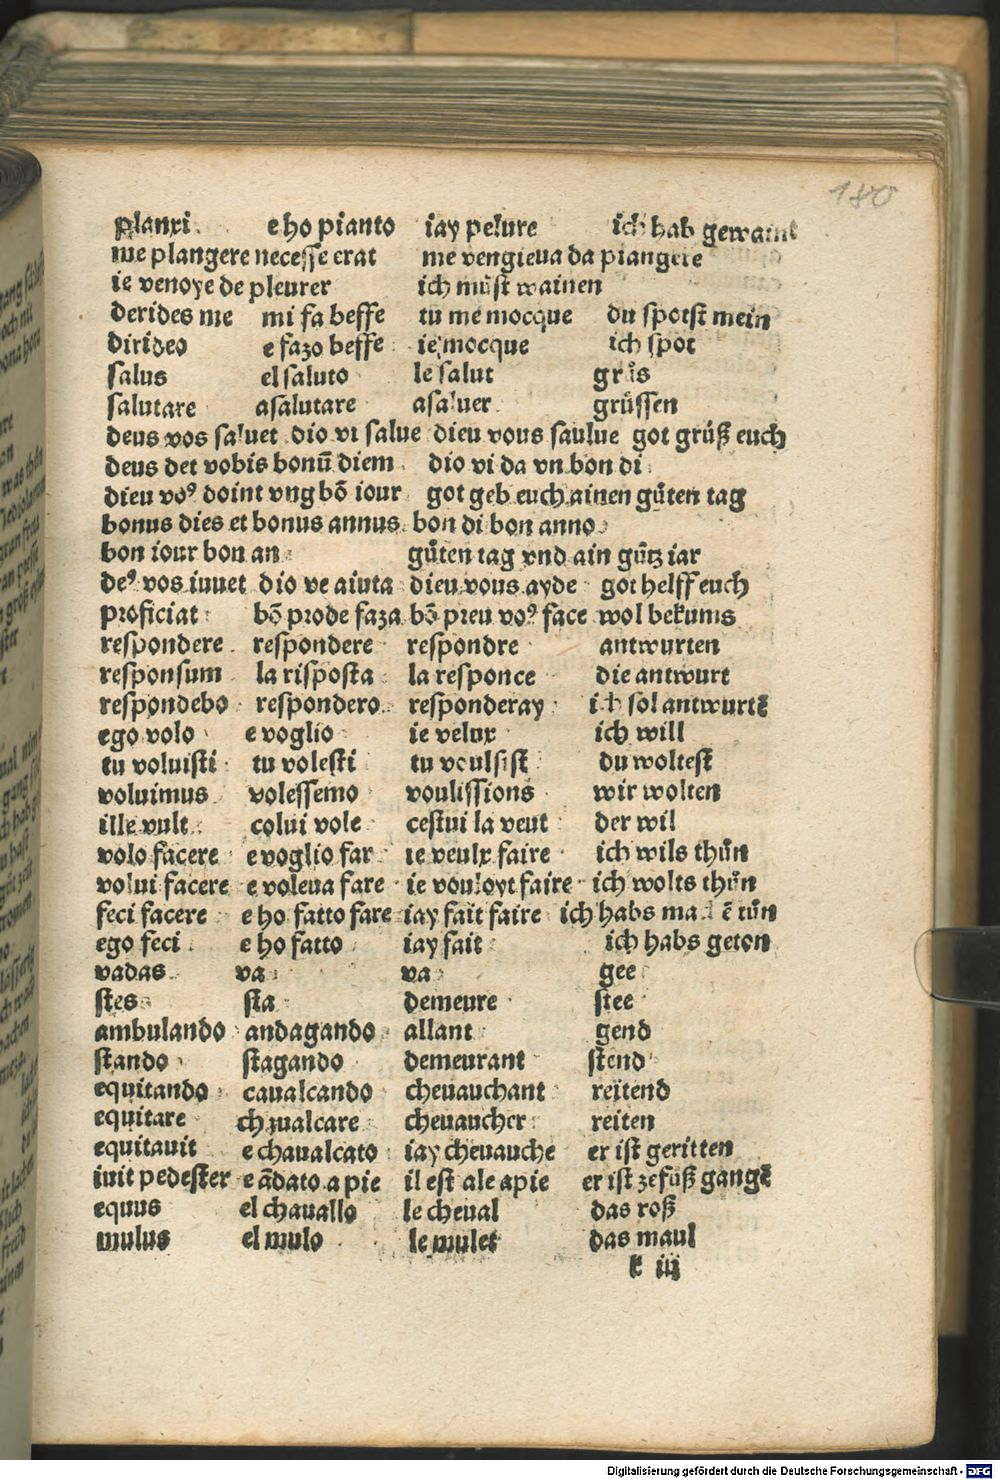 180
planxi e ho pianto iay pelure ich hab gewaint
me plangere necesse erat me vengieua da piangere
ie venoye de pleurer ich müst wainen
derides me mi fa beffe tu me mocque du spotst mein
dirideo e fazo beffe ie mocque ich spot
salus el saluto le salut grüs
salutare asalutare asaluer grüssen
deus vos saluet dio vi salue dieu vous saulue got grüß euch
deus det vobis bonū diem dio vi da vn bon di
dieu voꝰ doint vng bō iour got geb euch ainen gůten tag
bonus dies et bonus annus bon di bon anno
bon iour bon an gůten tag vnd ain gůtz iar
deꝰ vos iuuet dio ve aiuta dieu vous ayde got helff euch
proficiat bō prode faza bō preu voꝰ face wol bekums
respondere respondere respondre antwurten
responsum la risposta la responce die antwurt
respondebo respondero responderay ich sol antwurtē
ego volo e voglio ie velux ich will
tu voluisti tu volesti tu voulsist du woltest
voluimus volessemo voulissions wir wolten
ille vult colui vole cestui la veut der wil
volo facere e voglio far ie veulx faire ich wils thůn
volui facere e voleua fare ie vouloyt faire ich wolts thůn
feci facere e ho fatto fare iay fait faire ich habs tůn
ego feci e ho fatto iay fait ich habs geton
vadas va va gee
stes sta demeure stee
ambulando andagando allant gend
stando stagando demeurant stend
equitando caualcando cheuauchant reitend
equitare chaualcare cheuaucher reiten
equitauit e chaualcato iay cheuauche er ist geritten
iuit pedester e ādato a pie il est ale apie er ist zefůß gangē
equus el chauallo le cheual das roß
mulus el mulo le mulet das maul
k iij
Digitalisierung gefördert durch die Deutsche Forschungsgemeinschaft - DFG